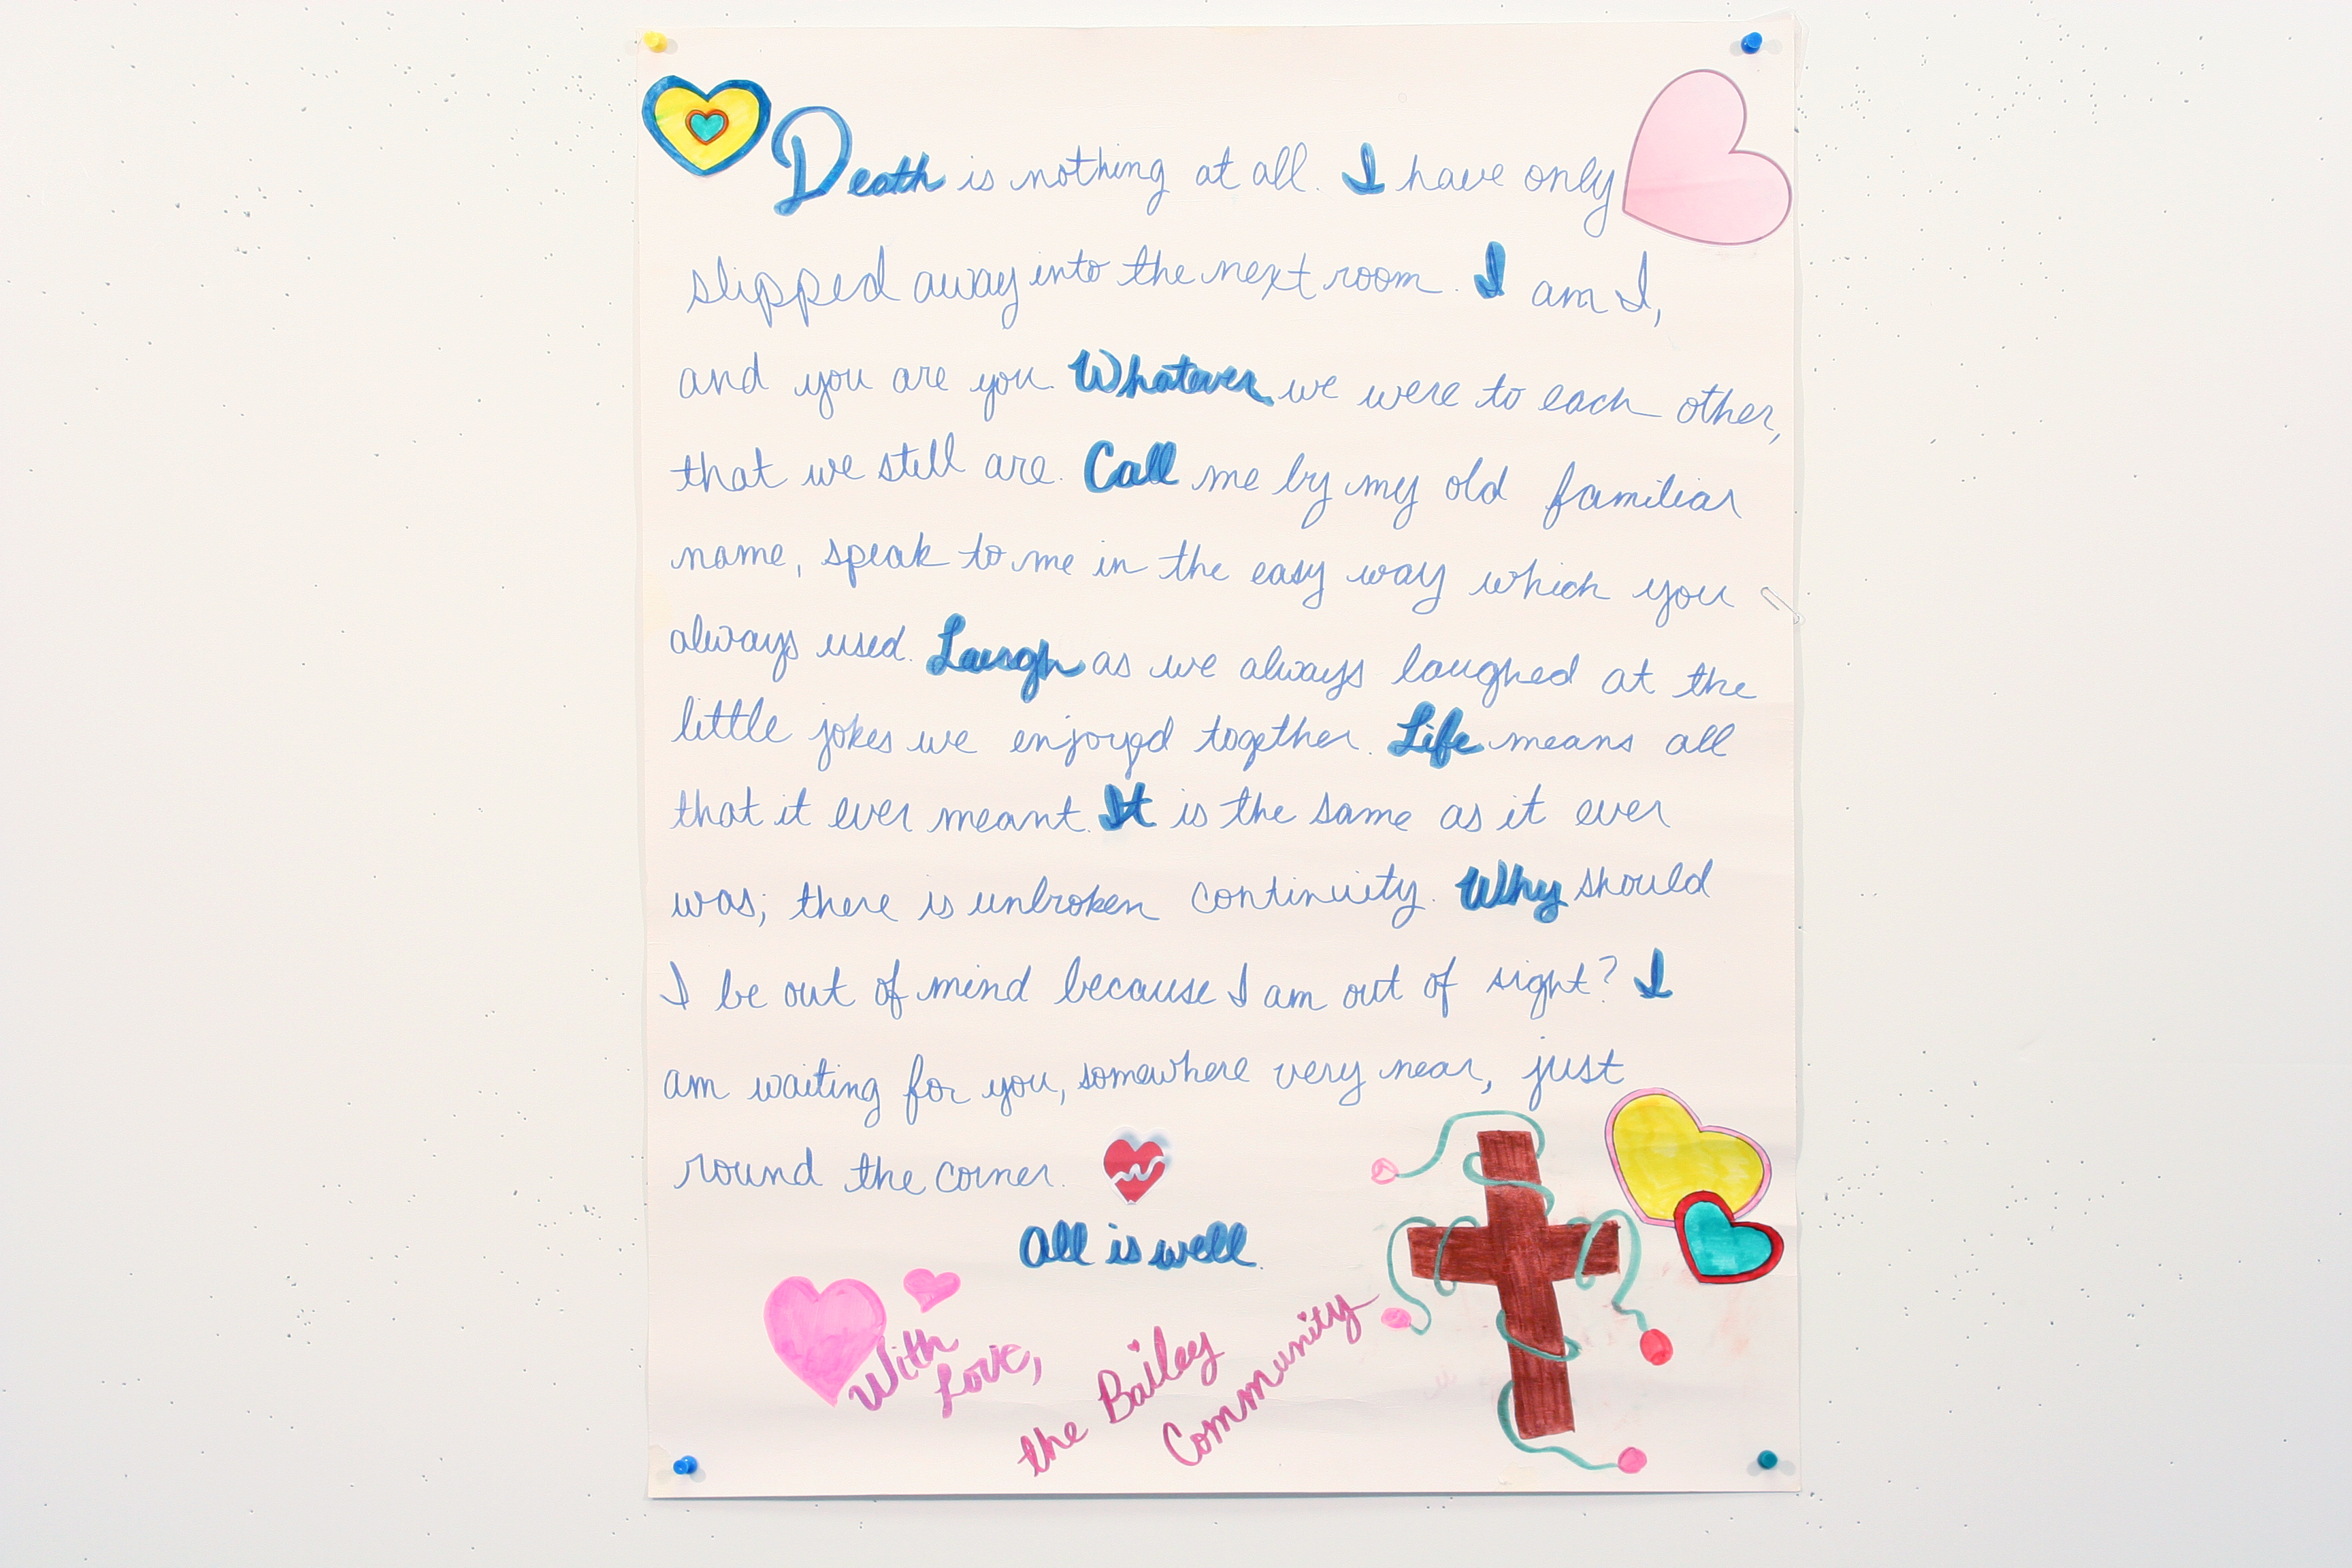 Death is nothing at all. I have only
slipped away into the next room. I am I,
and you are you. Whatever we were to each other,
that we still are. Call me by my old familiar
name, speak to me in the easy way which you
always used. Laugh as we always laughed at the
little jokes we enjoyed together. Life means all
that it ever meant. It is the same as it ever
was; there is unbroken continuity. Why should
I be out of mind because I am out of sight? I
am waiting for you, somewhere very near, just
round the corner.
All is well.
With
Love,
the Bailey
Community